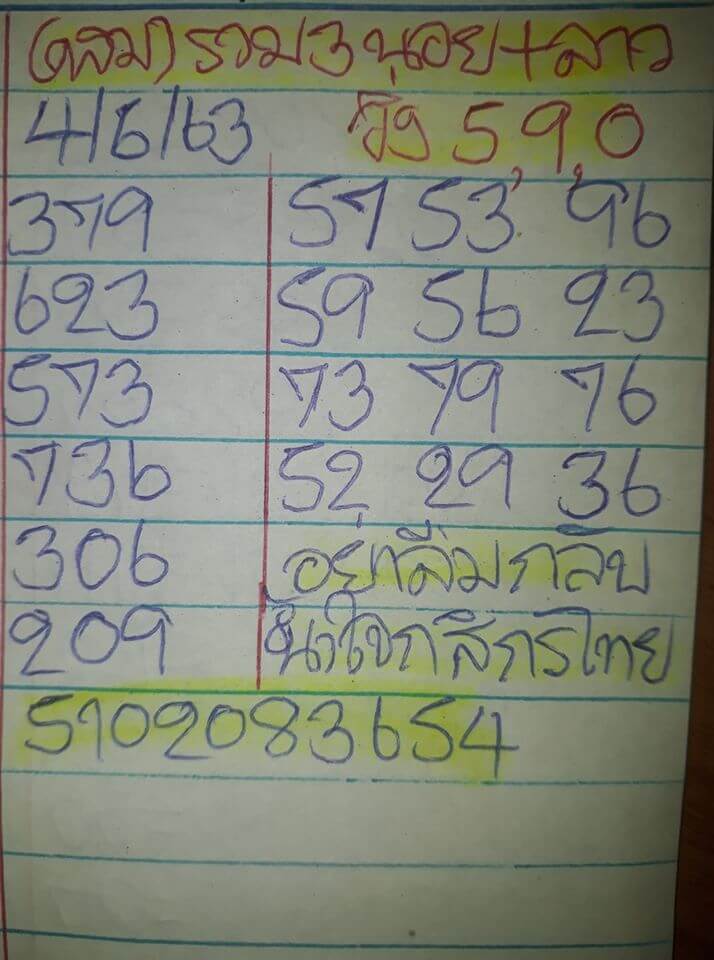 (ผสม) รวม 3 นอย + ลาว
4/6/63 วิ่ง 5,9,0
379 57 53 96
623 59 56 23
573 73 79 76
736 52 29 36
306 อย่าลืมกลับ
209 น้ำใจกสิกรไทย
5702083654